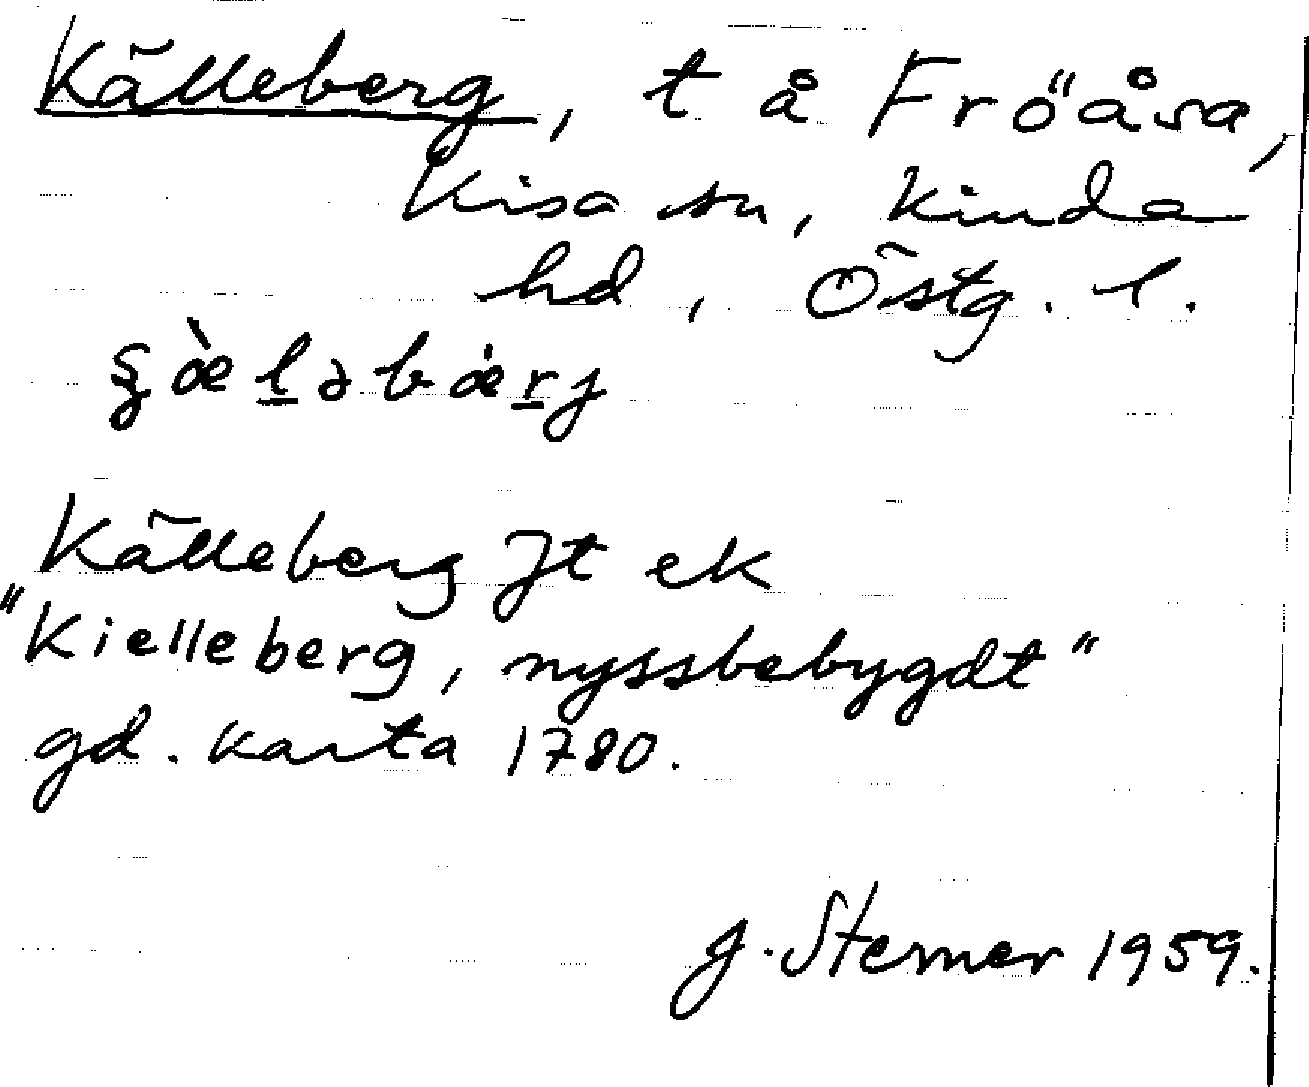 Källeberg, t å Fröåsa,
Kisa sn, Kinda
hd, Östg. l.
Källeberg Jt ek
"Kielleberg, nyssbebygdt"
gd. karta 1780.
J. Sterner 1959.